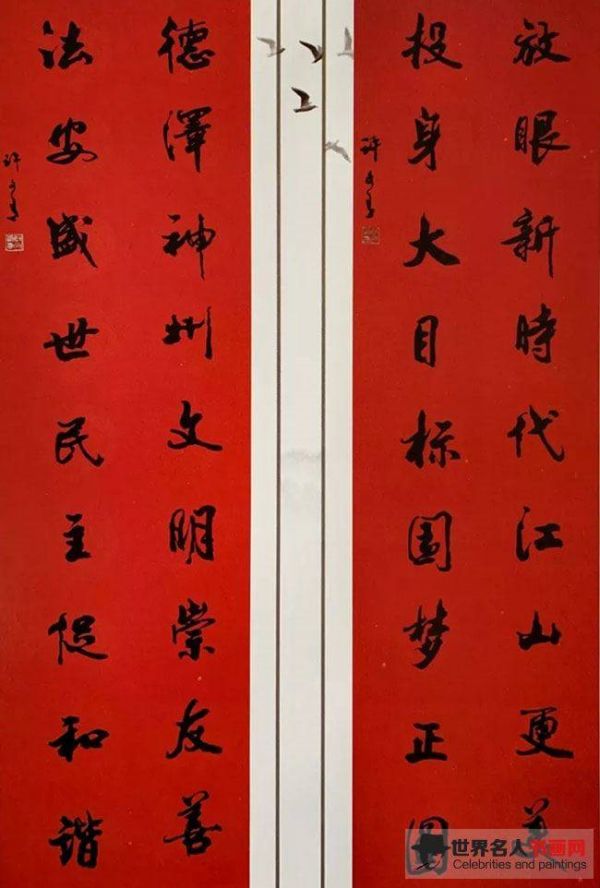 放眼新時代江山更美
投身大目标国梦正圆
德澤神州文明崇友善
法安盛世民主促和谐
世界名人书画网
Celebrities and paintings